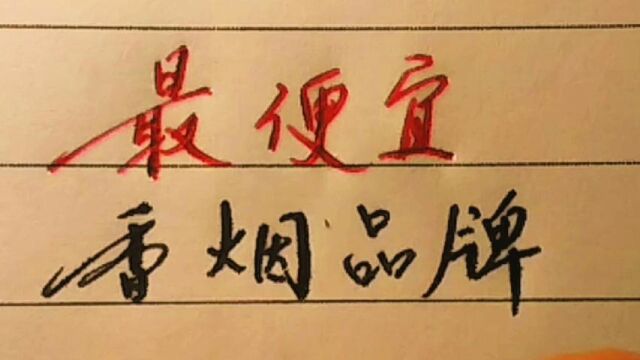 最便宜
香烟品牌